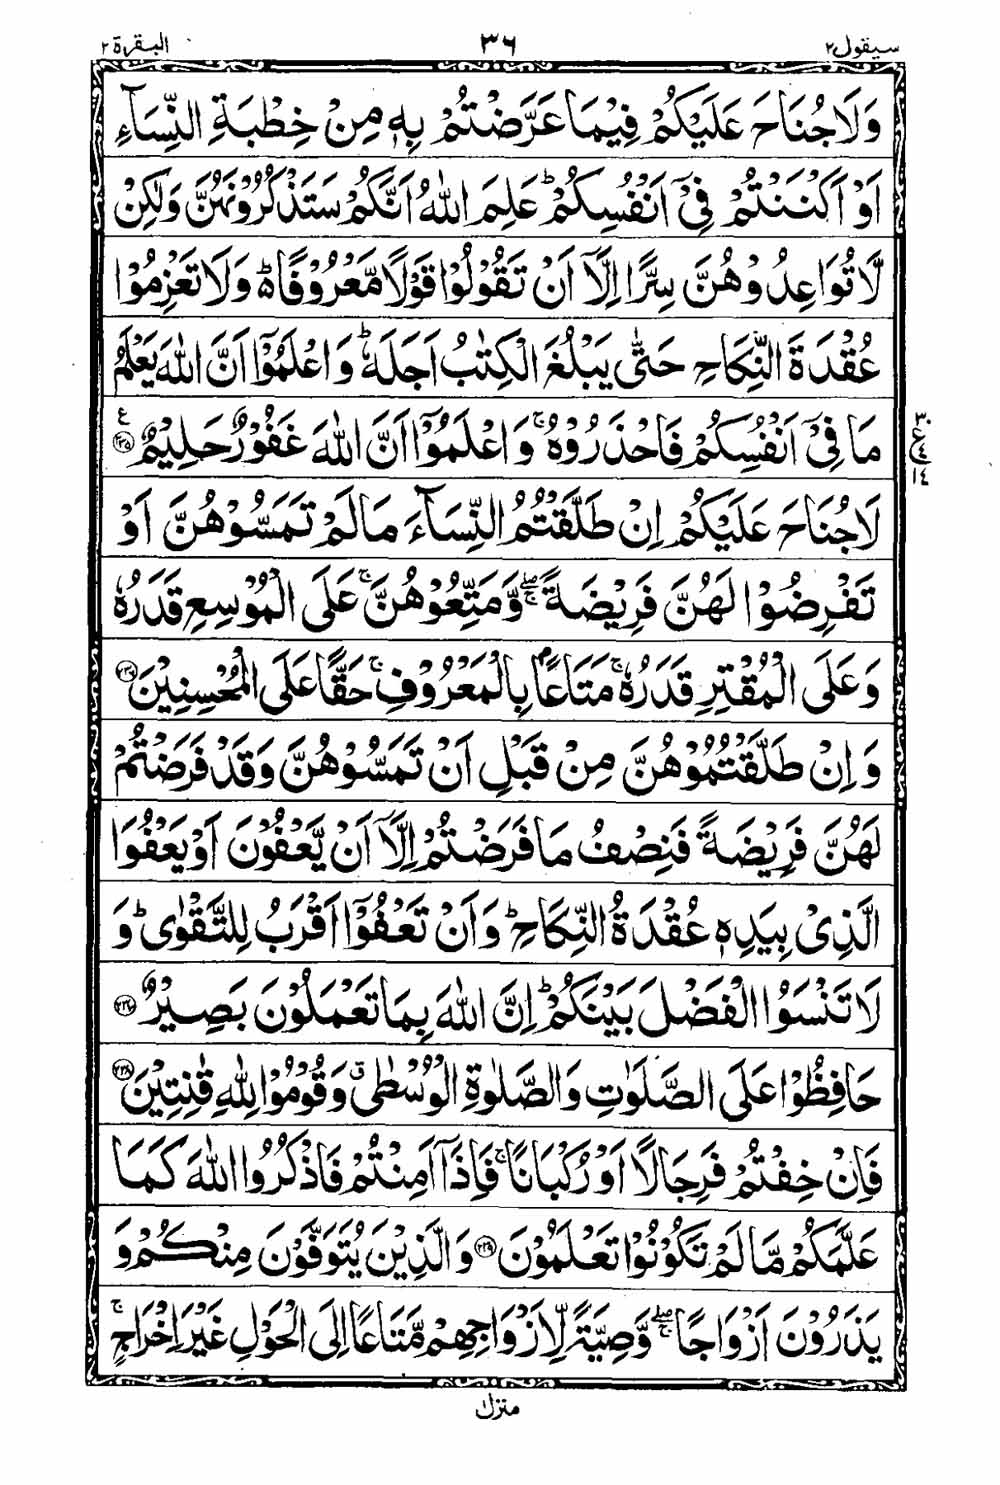 سيقول ٢ ٣٦ البقرة ٢
وَلَا جُنَاحَ عَلَيْكُمْ فِيْمَا عَرَّضْتُمْ بِهٖ مِنْ خِطْبَةِ النِّسَآءِ
اَوْ اَكْنَنْتُمْ فِیْۤ اَنْفُسِكُمْ ؕ عَلِمَ اللّٰهُ اَنَّكُمْ سَتَذْكُرُوْنَهُنَّ وَلٰكِنْ
لَّا تُوَاعِدُوْهُنَّ سِرًّا اِلَّاۤ اَنْ تَقُوْلُوْا قَوْلًا مَّعْرُوْفًا ؕ۬ وَلَا تَعْزِمُوْا
عُقْدَةَ النِّكَاحِ حَتّٰی يَبْلُغَ الْكِتٰبُ اَجَلَهٗ ؕ وَاعْلَمُوْۤا اَنَّ اللّٰهَ يَعْلَمُ
مَا فِیْۤ اَنْفُسِكُمْ فَاحْذَرُوْهُ ۚ وَاعْلَمُوْۤا اَنَّ اللّٰهَ غَفُوْرٌ حَلِيْمٌ ع ﴿٢٣٥﴾
لَا جُنَاحَ عَلَيْكُمْ اِنْ طَلَّقْتُمُ النِّسَآءَ مَا لَمْ تَمَسُّوْهُنَّ اَوْ
تَفْرِضُوْا لَهُنَّ فَرِيْضَةً ۖۚ وَّمَتِّعُوْهُنَّ ۚ عَلَی الْمُوْسِعِ قَدَرُهٗ
وَعَلَی الْمُقْتِرِ قَدَرُهٗ ۚ مَتَاعًاۢ بِالْمَعْرُوْفِ ۚ حَقًّا عَلَی الْمُحْسِنِيْنَ ﴿٢٣٦﴾
وَاِنْ طَلَّقْتُمُوْهُنَّ مِنْ قَبْلِ اَنْ تَمَسُّوْهُنَّ وَقَدْ فَرَضْتُمْ
لَهُنَّ فَرِيْضَةً فَنِصْفُ مَا فَرَضْتُمْ اِلَّاۤ اَنْ يَّعْفُوْنَ اَوْ يَعْفُوَا
الَّذِیْ بِيَدِهٖ عُقْدَةُ النِّكَاحِ ؕ وَاَنْ تَعْفُوْۤا اَقْرَبُ لِلتَّقْوٰی ؕ وَ
لَا تَنْسَوُا الْفَضْلَ بَيْنَكُمْ ؕ اِنَّ اللّٰهَ بِمَا تَعْمَلُوْنَ بَصِيْرٌ ﴿٢٣٧﴾
حَافِظُوْا عَلَی الصَّلَوٰتِ وَالصَّلٰوةِ الْوُسْطٰی ۗ وَقُوْمُوْا لِلّٰهِ قٰنِتِيْنَ ﴿٢٣٨﴾
فَاِنْ خِفْتُمْ فَرِجَالًا اَوْ رُكْبَانًا ۚ فَاِذَاۤ اَمِنْتُمْ فَاذْكُرُوا اللّٰهَ كَمَا
عَلَّمَكُمْ مَّا لَمْ تَكُوْنُوْا تَعْلَمُوْنَ ﴿٢٣٩﴾ وَالَّذِيْنَ يُتَوَفَّوْنَ مِنْكُمْ وَ
يَذَرُوْنَ اَزْوَاجًا ۖۚ وَّصِيَّةً لِّاَزْوَاجِهِمْ مَّتَاعًا اِلَی الْحَوْلِ غَيْرَ اِخْرَاجٍ ۚ
٣٠ ع ١٤
منزل